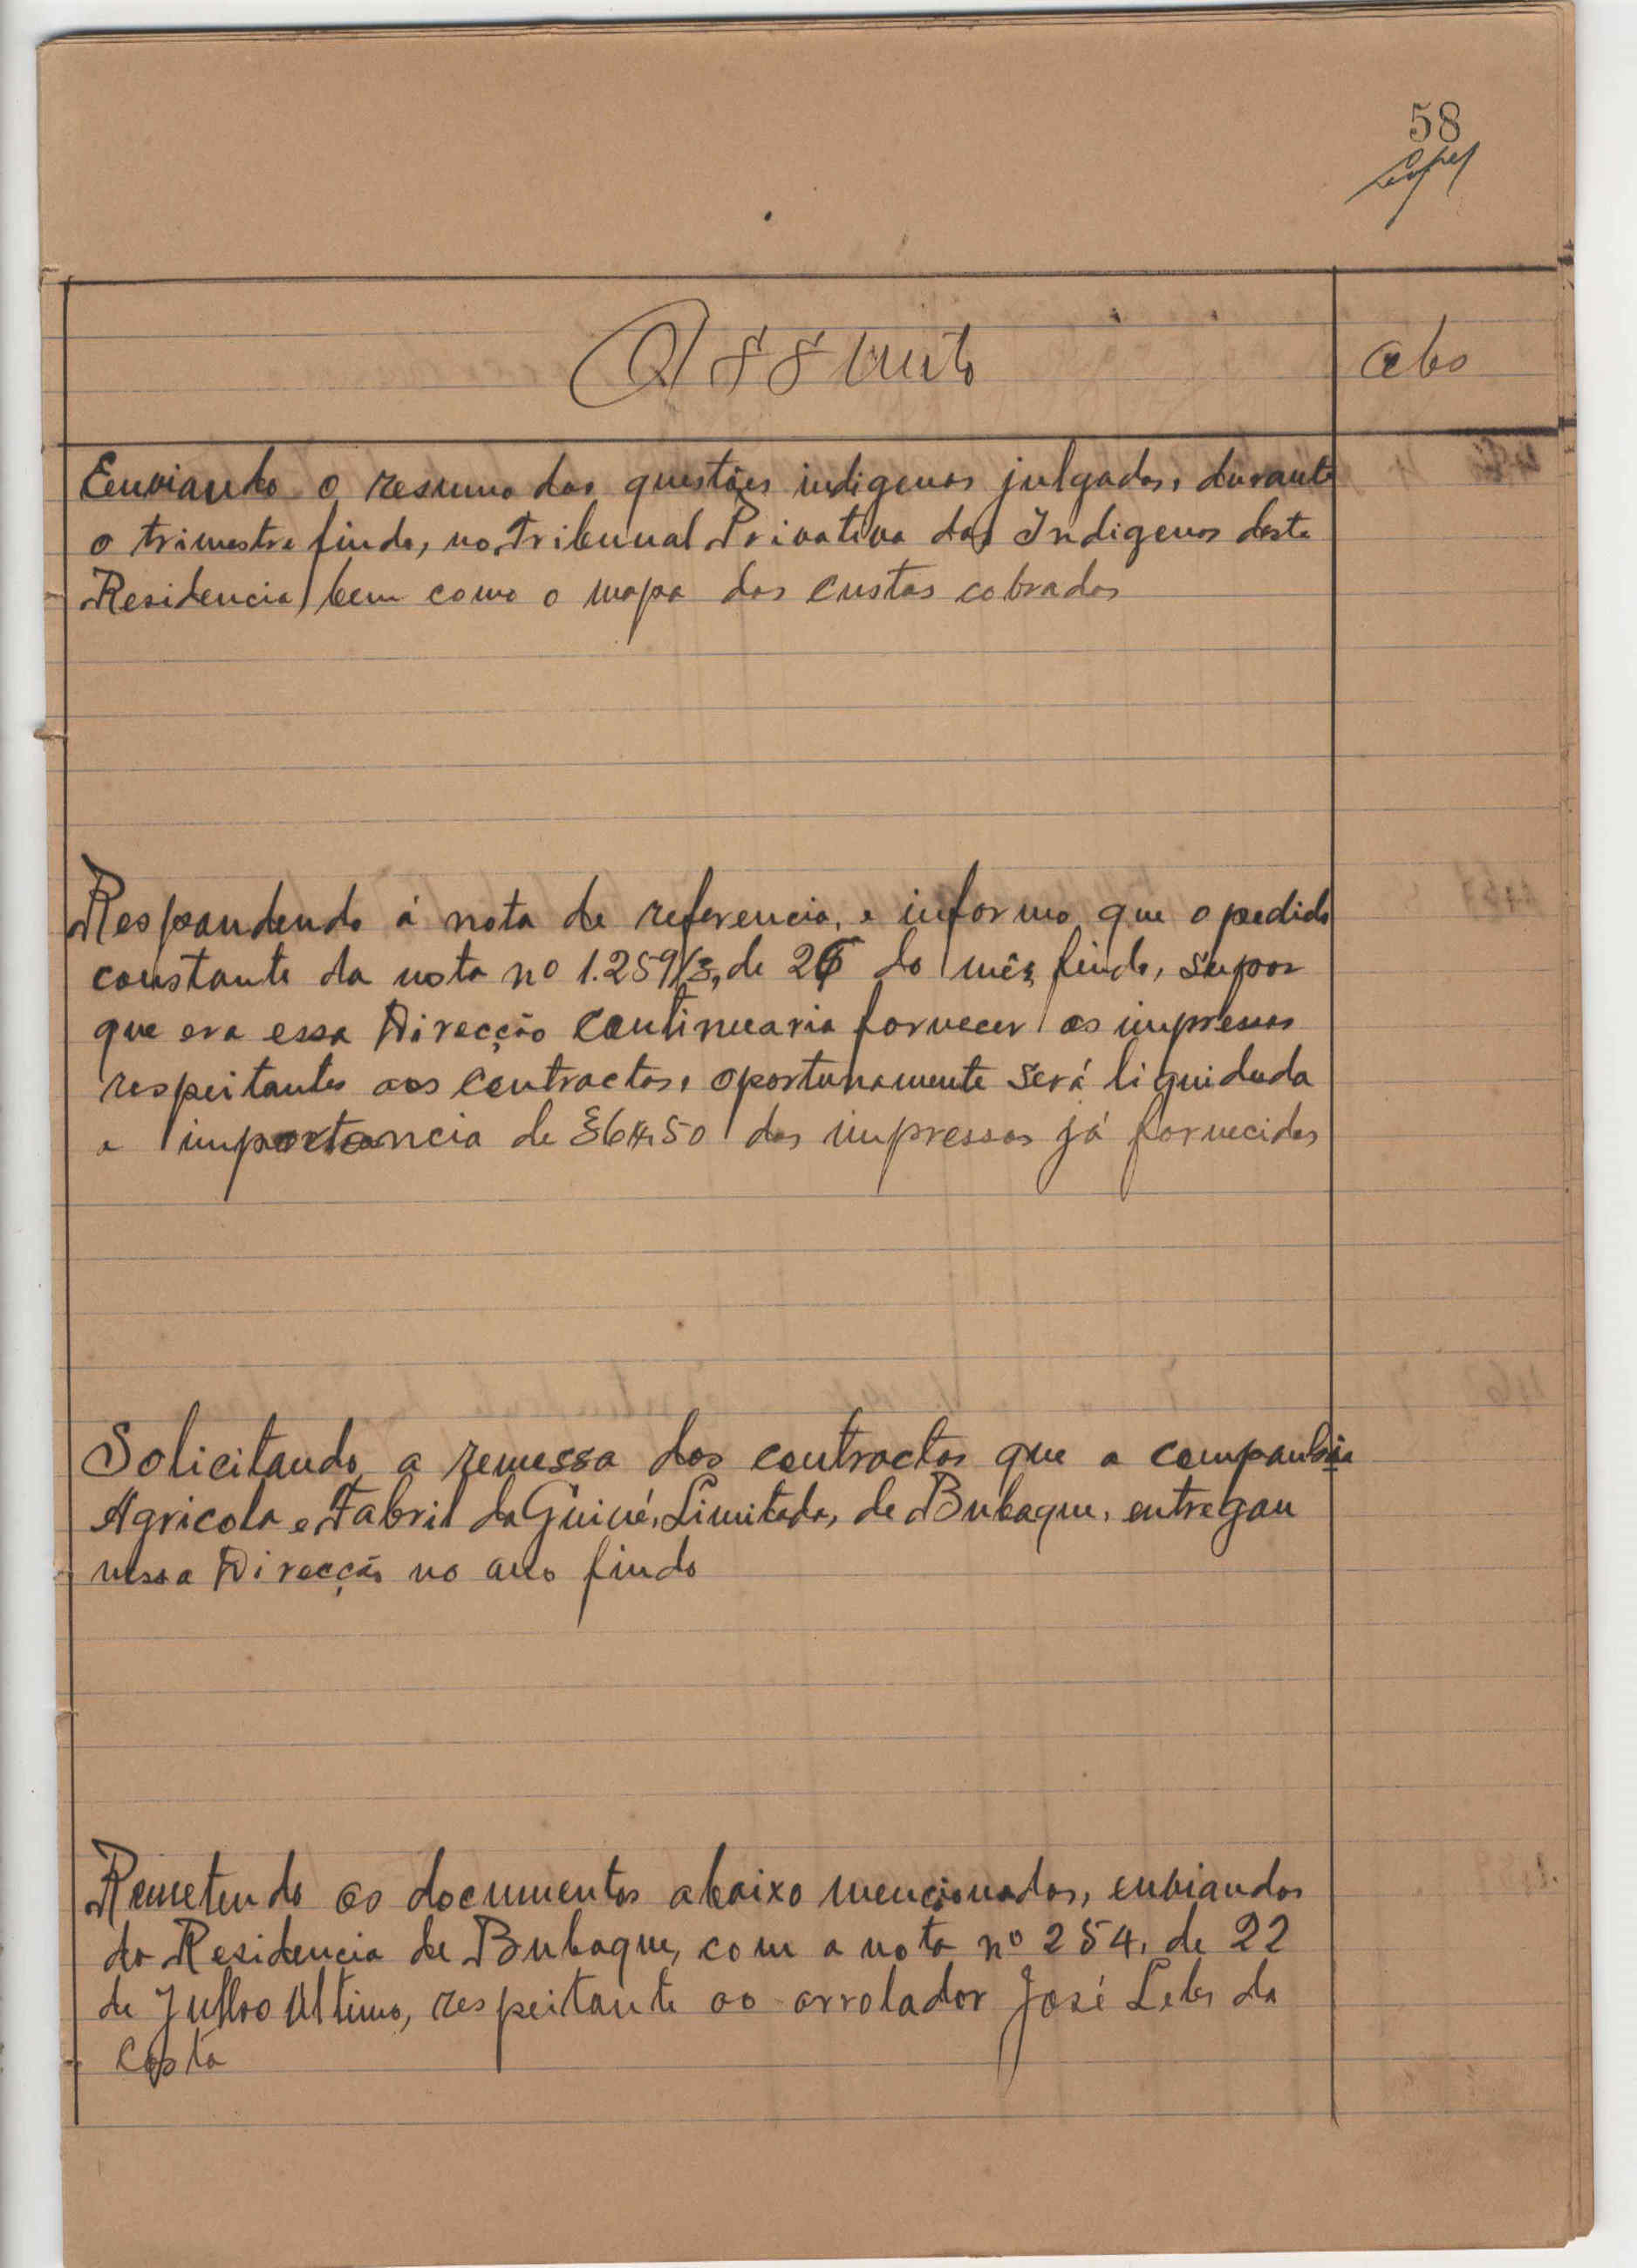 58
Assunto
Obs
Enviando o resumo das questões indigenas julgadas, durante
o trimestre findo, no Tribunal Privativo dos Indigenas desta
Residencia, bem como o mapa das custas cobradas
Respondendo á nota de referencia, e informo que o pedido
constante da nota nº 1.259/3, de 26 do mês findo, supor
que era essa Direcção continuaria fornecer os impressos
respeitantes aos contractos, oportunamente será liquidada
a importancia de 36$50 dos impressos já fornecidos
Solicitando a remessa dos contractos que a companhia
Agricola e Fabril da Guiné, Limitada, de Bubaque, entregou
nessa Direcção no ano findo
Remetendo os documentos abaixo mencionados, enviandos
da Residencia de Bubaque, com a nota nº 254, de 22
de Julho Ultimo, respeitante ao arrolador José Leles da
Costa